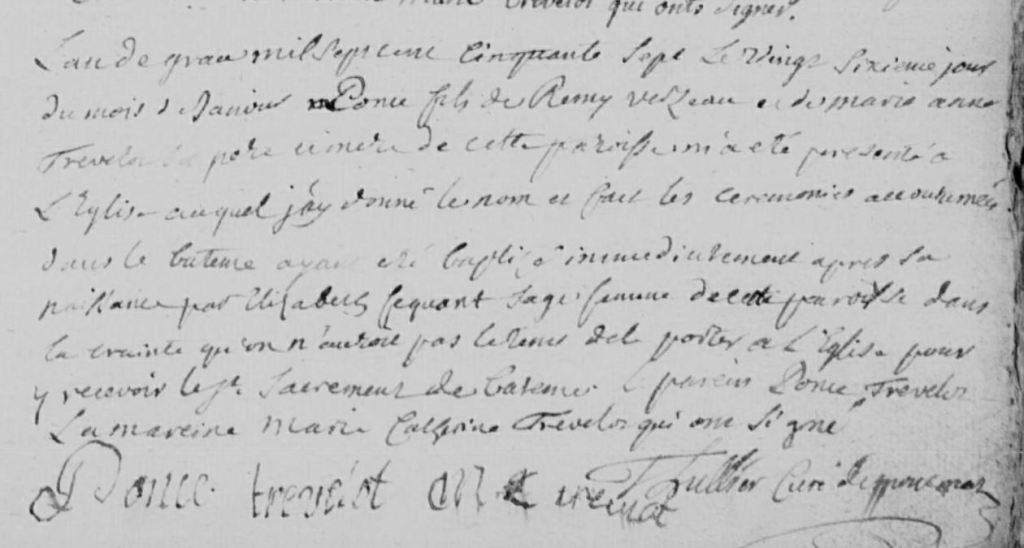 marie trevelot qui onts signer.
L'an de grace mil sept cent cinquante sept Le Vingt sixieme jour
du mois de Janvier Ponce fils de Remy verzeau et de marie anne
Trevelot sa pere et mere de cette paroisse m'a eté presenté a
L'Eglise auquel j'ay donné le nom et fait les ceremonies accoutumées
dans le bateme ayant eté baptizé immediatement apres sa
naissance par Elizabeth sequant sage femme de cette paroisse dans
la crainte qu'on n'auroit pas le tems de le porter a L'Eglise pour
y recevoir le st. Sacrement de bateme. Le parein Ponce Trevelot
La mareine Marie Catherine Trevelot qui ont signé
Ponce trevelot M C trevelot Thullier Curé de